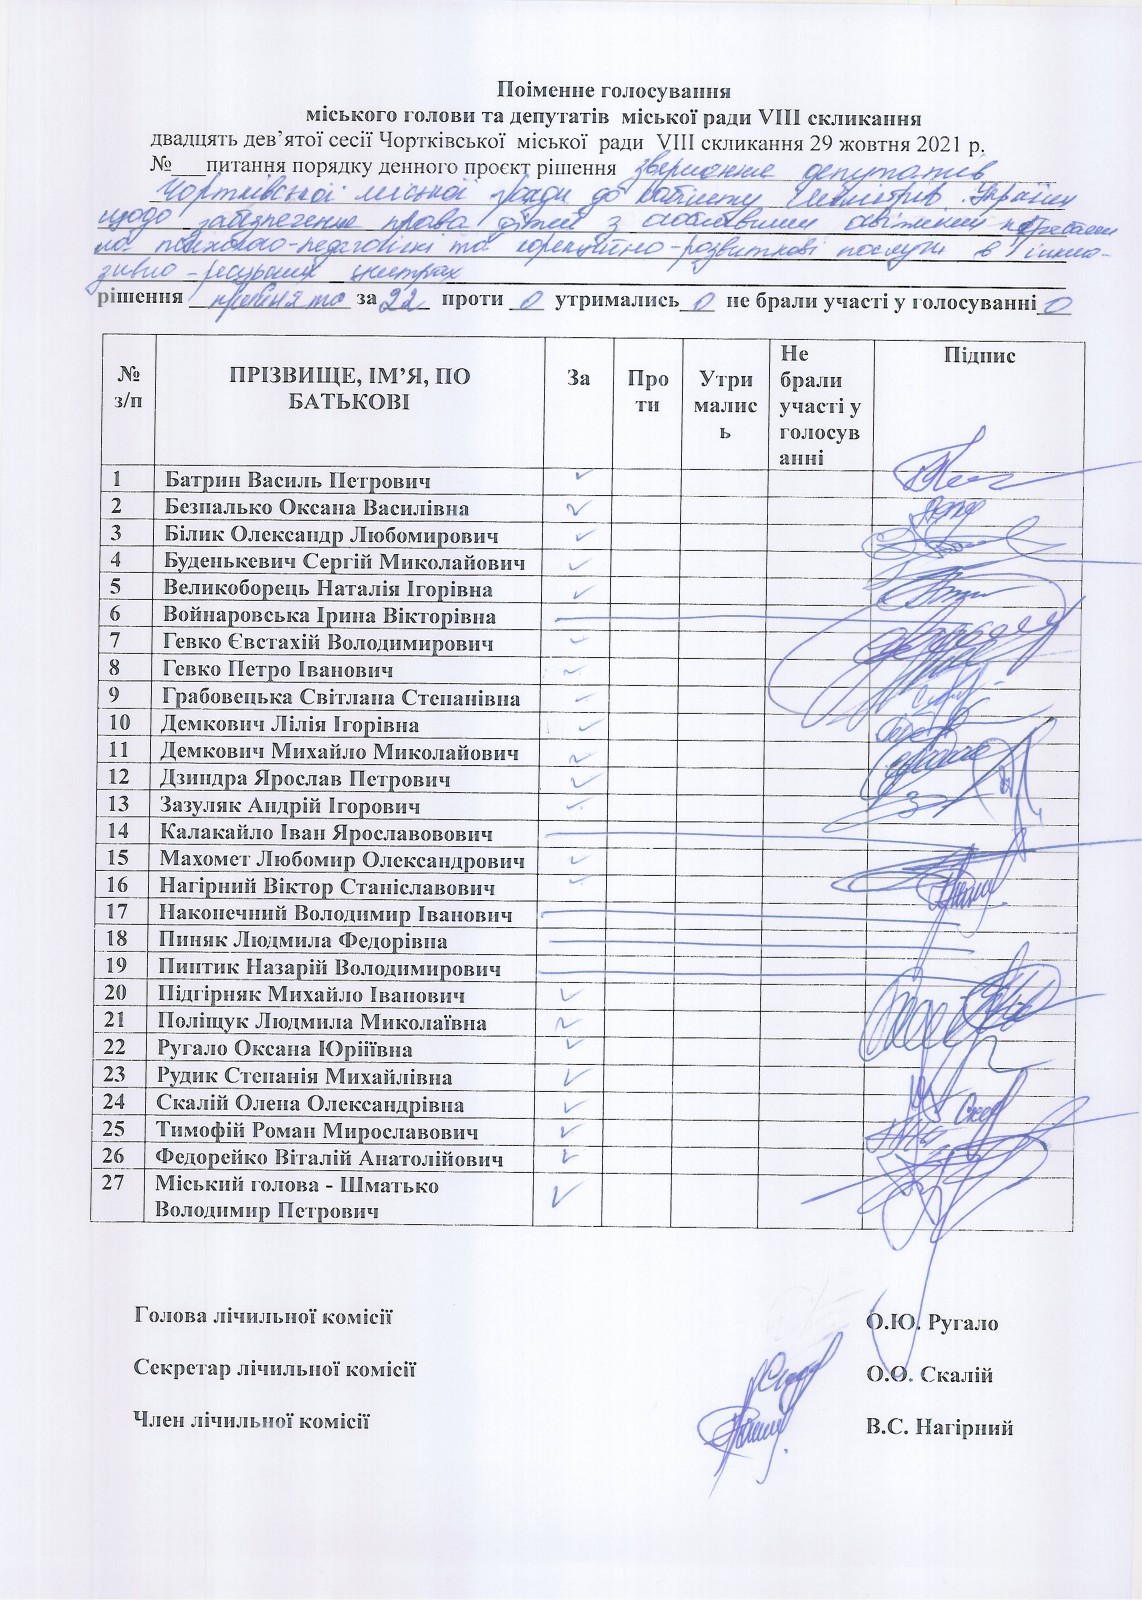 Поіменне голосування
міського голови та депутатів міської ради VIII скликання
двадцять дев’ятої сесії Чортківської міської ради VIII скликання 29 жовтня 2021 р.
№___питання порядку денного проєкт рішення звернення депутатів
Чортківської міської ради до Кабінету Міністрів України
щодо забезпечення права дітей з особливими освітніми потребами
на психолого-педагогічні та корекційно-розвиткові послуги в інклю-
зивно-ресурсних центрах
рішення прийнято за 22 проти 0 утримались 0 не брали участі у голосуванні 0
№ з/п ПРІЗВИЩЕ, ІМ’Я, ПО БАТЬКОВІ За Про ти Утри малис ь Не брали участі у голосув анні Підпис
1 Батрин Василь Петрович ✓
2 Безпалько Оксана Василівна ✓
3 Білик Олександр Любомирович ✓
4 Буденькевич Сергій Миколайович ✓
5 Великоборець Наталія Ігорівна ✓
6 Войнаровська Ірина Вікторівна
7 Гевко Євстахій Володимирович ✓
8 Гевко Петро Іванович ✓
9 Грабовецька Світлана Степанівна ✓
10 Демкович Лілія Ігорівна ✓
11 Демкович Михайло Миколайович ✓
12 Дзиндра Ярослав Петрович ✓
13 Зазуляк Андрій Ігорович ✓
14 Калакайло Іван Ярославовович
15 Махомет Любомир Олександрович ✓
16 Нагірний Віктор Станіславович ✓
17 Наконечний Володимир Іванович
18 Пиняк Людмила Федорівна
19 Пинтик Назарій Володимирович
20 Підгірняк Михайло Іванович ✓
21 Поліщук Людмила Миколаївна ✓
22 Ругало Оксана Юріїівна ✓
23 Рудик Степанія Михайлівна ✓
24 Скалій Олена Олександрівна ✓
25 Тимофій Роман Мирославович ✓
26 Федорейко Віталій Анатолійович ✓
27 Міський голова - Шматько
Володимир Петрович ✓
Голова лічильної комісії О.Ю. Ругало
Секретар лічильної комісії О.О. Скалій
Член лічильної комісії В.С. Нагірний